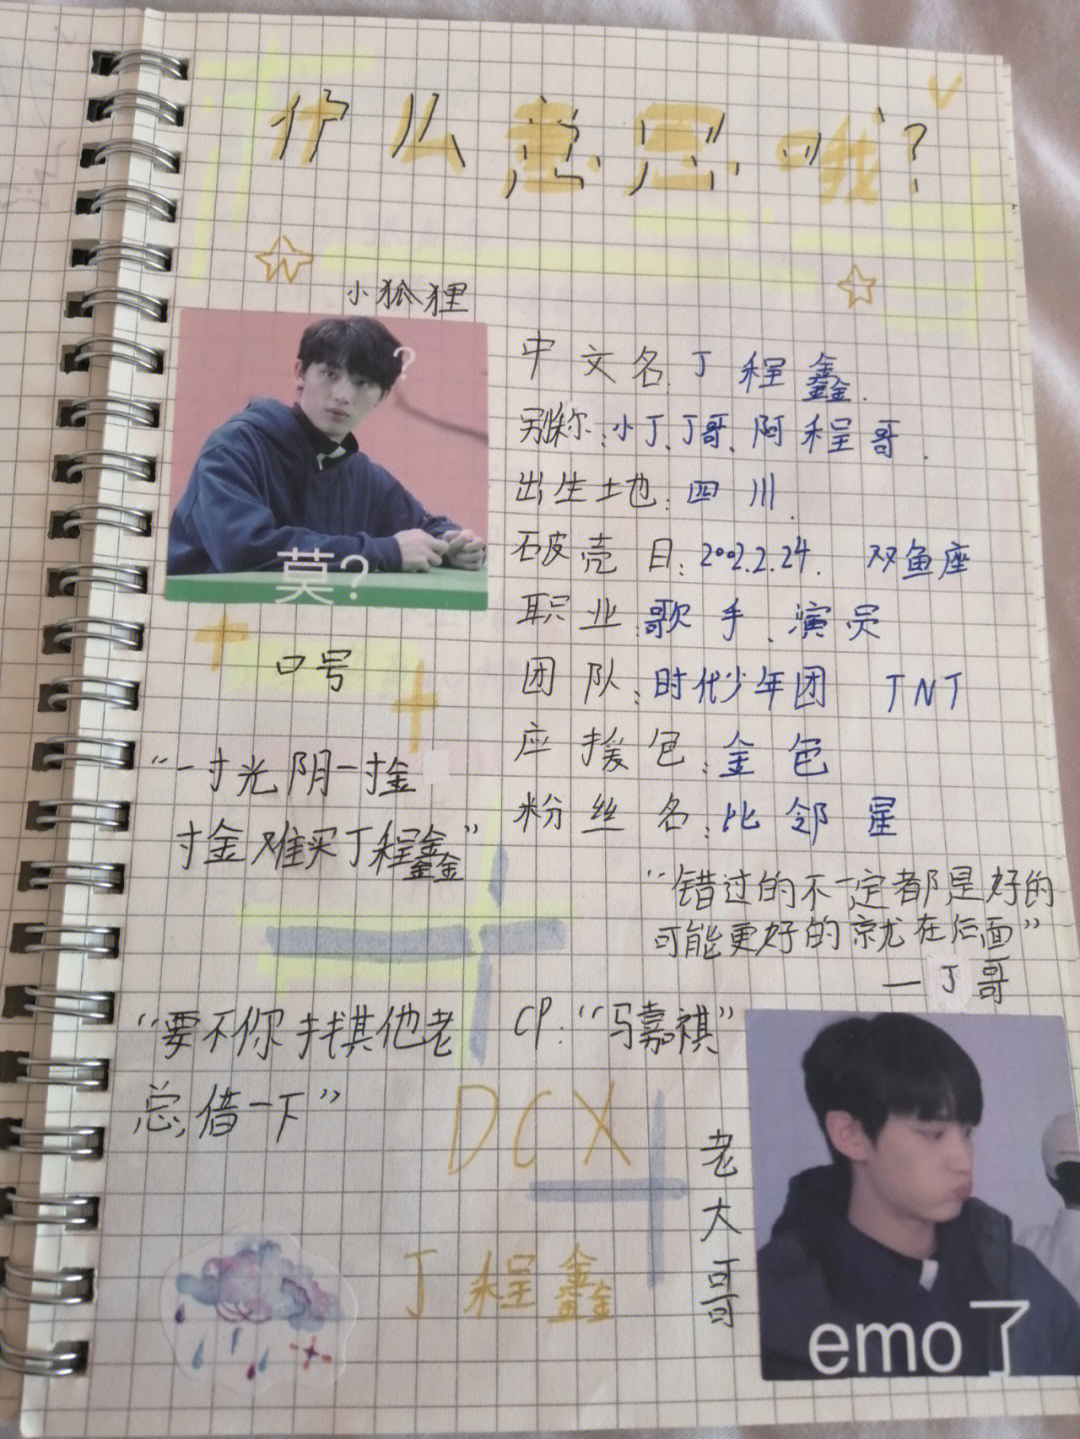 什么意思哦?
小狐狸
?
莫?
中文名:丁程鑫.
别称:小丁、丁哥、阿程哥.
出生地:四川.
破壳日:2002.2.24. 双鱼座
职业:歌手、演员
团队:时代少年团 TNT
应援色:金色
粉丝名:比邻星
口号
“一寸光阴一寸金
寸金难买丁程鑫”
“错过的不一定都是好的
可能更好的就在后面”
—丁哥
“要不你找其他老
总,借一下”
CP:“马嘉祺”
DCX
丁程鑫
老大哥
emo了